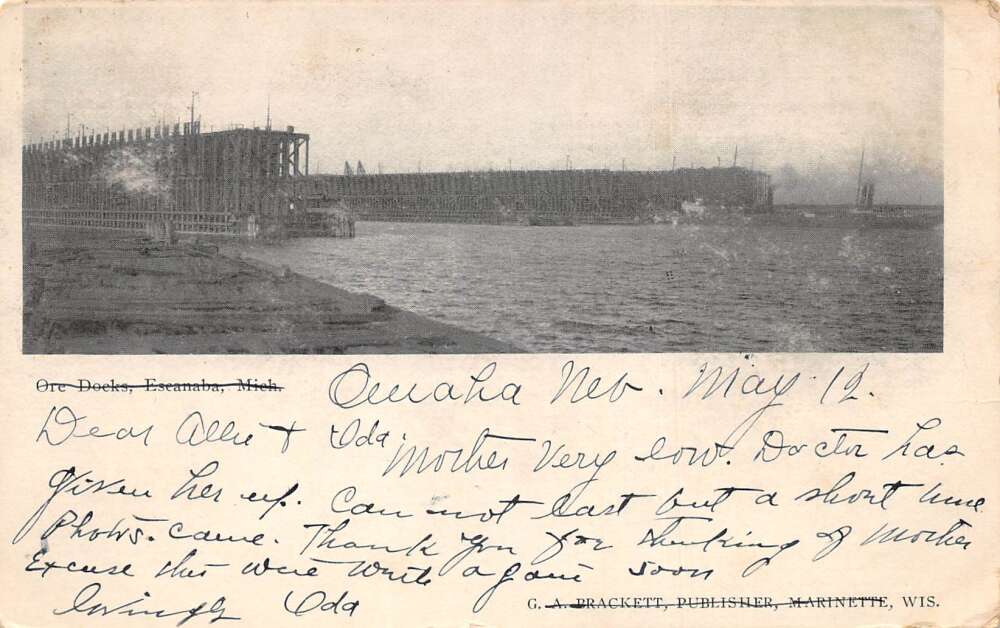 Ore Docks, Escanaba, Mich.
Omaha Neb. May 12.
Dear Allie & Oda.
Mother Very low. Doctor has
given her up. Can not last but a short time
Photos. came. Thank you for thinking of Mother
Excuse this will write again soon
lovingly Oda
G. A. BRACKETT, PUBLISHER, MARINETTE, WIS.